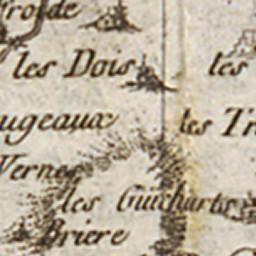 les Dois
les
ugeaux
les Tr
Vernes
les Guicharts
Briere